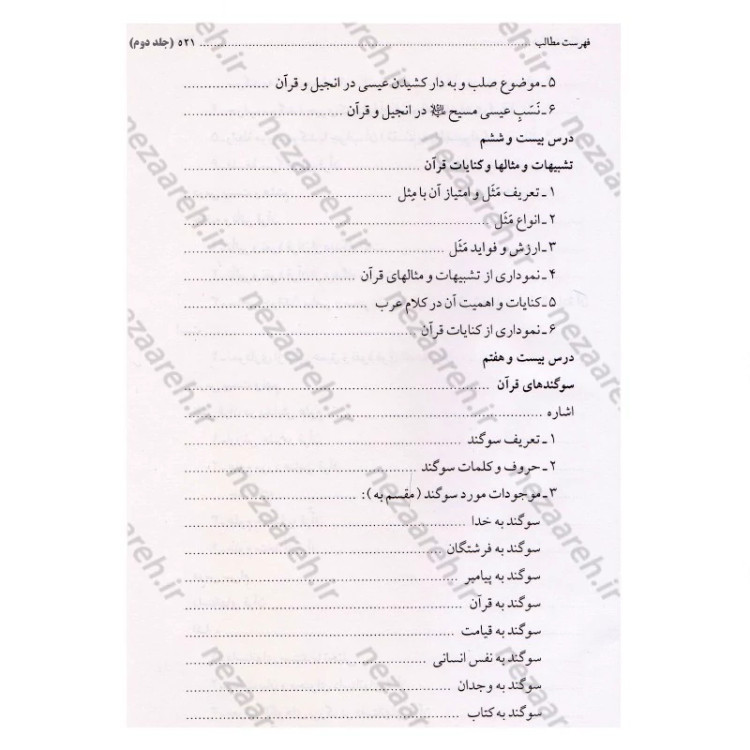 فهرست مطالب ........ ۵۲۱ (جلد دوم)
۵ ـ موضوع صلب و به دار کشیدن عیسی در انجیل و قرآن ........
۶ ـ نَسَبِ عیسی مسیح ﷺ در انجیل و قرآن ........
درس بیست و ششم
تشبیهات و مثالها و کنایات قرآن
۱ ـ تعریف مَثَل و امتیاز آن با مِثل ........
۲ ـ انواع مَثَل ........
۳ ـ ارزش و فواید مَثَل ........
۴ ـ نموداری از تشبیهات و مثالهای قرآن ........
۵ ـ کنایات و اهمیت آن در کلام عرب ........
۶ ـ نموداری از کنایات قرآن ........
درس بیست و هفتم
سوگندهای قرآن ........
اشاره ........
۱ ـ تعریف سوگند ........
۲ ـ حروف و کلمات سوگند ........
۳ ـ موجودات مورد سوگند (مقسم به):
سوگند به خدا ........
سوگند به فرشتگان ........
سوگند به پیامبر ........
سوگند به قرآن ........
سوگند به قیامت ........
سوگند به نفس انسانی ........
سوگند به وجدان ........
سوگند به کتاب ........
nezaareh.ir